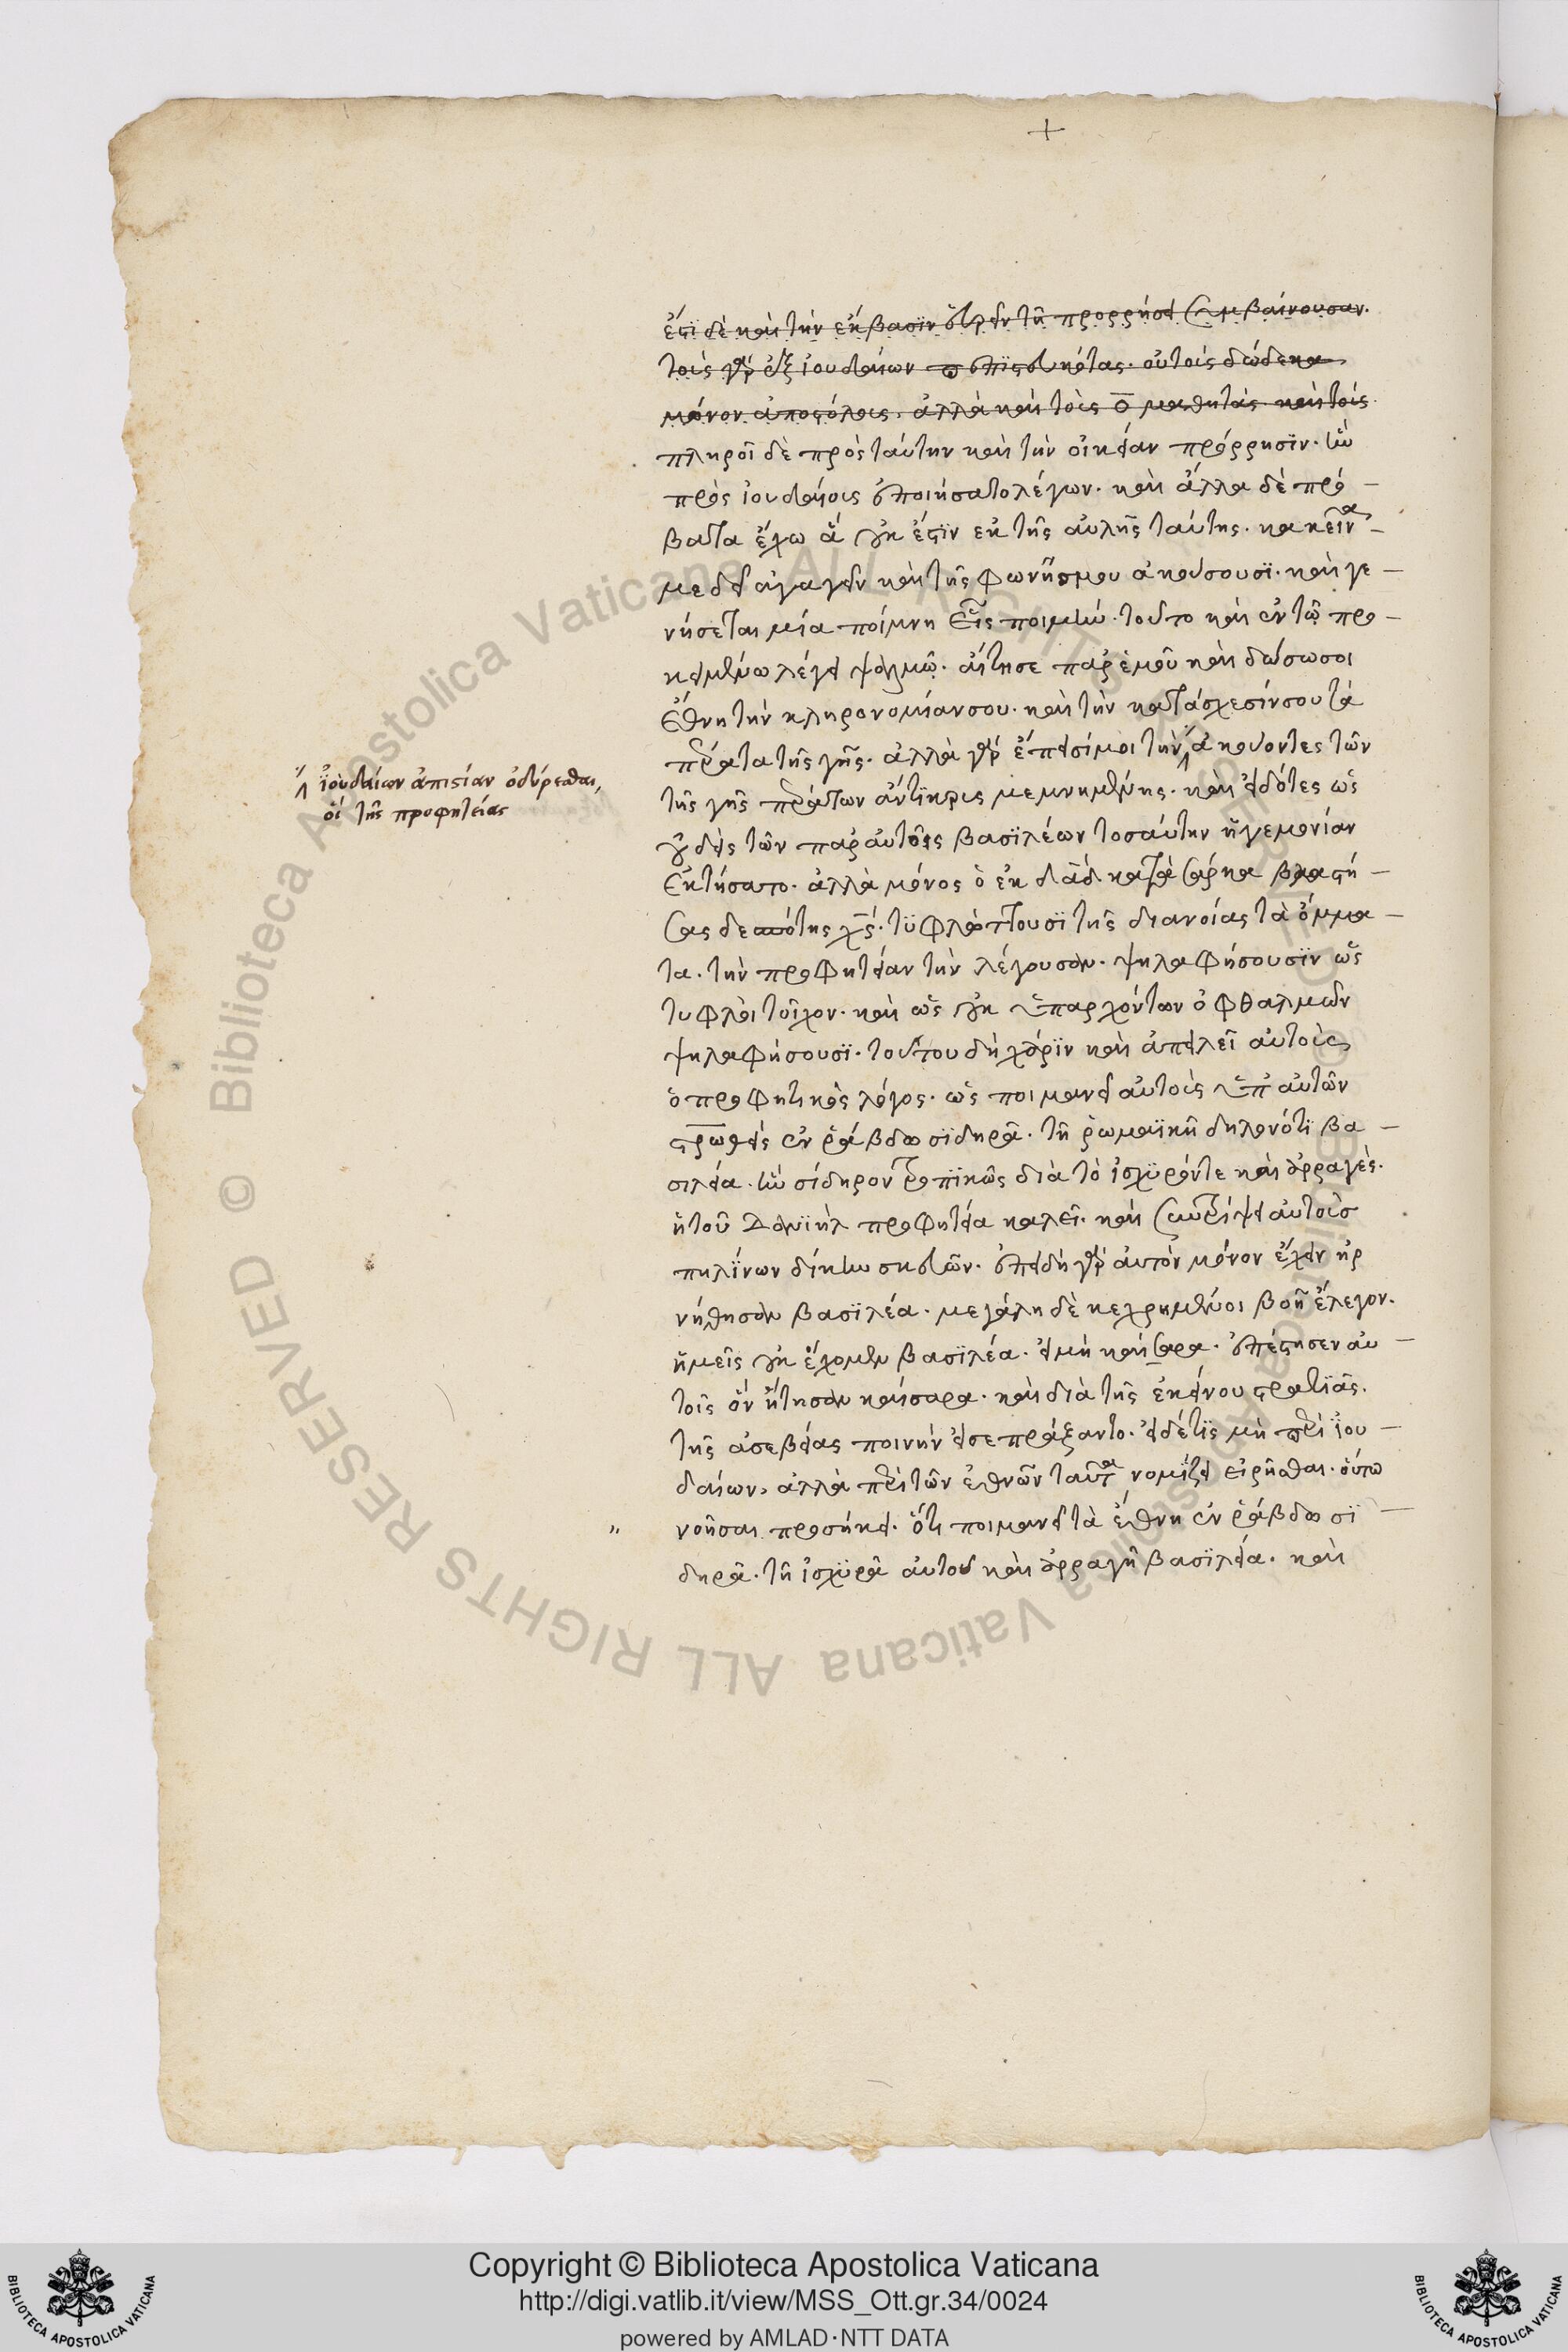 +
ἔστι δὲ καὶ τὴν ἔκβασιν εὑρεῖν τῇ προρρήσει συμβαίνουσαν.
τοὺς γὰρ ἐξ ἰουδαίων πεπιστευκότας. οὐ τοὺς δώδεκα
μόνον ἀποστόλους. ἀλλὰ καὶ τοὺς ο̄ μαθητάς. καὶ τοὺς
πληροῖ δὲ πρὸς ταύτην καὶ τὴν οἰκείαν πρόρρησιν. ἣν
πρὸς ἰουδαίους ἐποιήσατο λέγων. καὶ ἄλλα δὲ πρό
βατα ἔχω ἃ οὐκ ἔστιν ἐκ τῆς αὐλῆς ταύτης. κακεῖνα
με δεῖ ἀγαγεῖν καὶ τῆς φωνῆς μου ἀκούσουσι. καὶ γε
νήσεται μία ποίμνη εἷς ποιμήν. τοῦτο καὶ ἐν τῷ προ
κειμένω λέγει ψαλμῷ. αἴτησε παρ' ἐμοῦ καὶ δώσω σοι
ἔθνη τὴν κληρονομίαν σου. καὶ τὴν κατάσχεσίν σου τὰ
πέρατα τῆς γῆς. ἀλλὰ γὰρ ἔπεισί μοι τὴν ἀκούοντες τῶν
῎Λ ἰουδαίων ἀπιστίαν ὀδύρεσθαι,
οἳ τῆς προφητείας
τῆς γῆς περάτων ἄντικρυς μεμνημένης. καὶ εἰδότες ὡς
οὐδεὶς τῶν παρ' αὐτοῖς βασιλέων τοσαύτην ἡγεμονίαν
ἐκτήσατο. ἀλλὰ μόνος ὁ ἐκ δαδ κατὰ σάρκα βλαστή
σας δεσπότης χς. τυφλώττουσι τῆς διανοίας τὰ ὄμμα
τα. τὴν προφητείαν τὴν λέγουσαν. ψηλαφήσουσιν ὡς
τυφλοὶ τοῖχον. καὶ ὡς οὐχ ὑπαρχόντων ὀφθαλμῶν
ψηλαφήσουσι. τούτου δὴ χάριν καὶ ἀπειλεῖ αὐτοῖς
ὁ προφητικὸς λόγος. ὡς ποιμανεῖ αὐτοὺς ὑπ' αὐτῶν
στρωθεὶς ἐν ῥάβδω σιδηρᾷ. τῇ ῥωμαϊκῇ δηλονότι βα
σιλεία. ἣν σίδηρον τροπικῶς διὰ τὸ ἰσχυρόν τε καὶ ἀρραγές.
ἡ τοῦ Δανιὴλ προφητεία καλεῖ. καὶ συντρίψει αὐτοὺς
πηλίνων δίκην σκευῶν. ἐπειδὴ γὰρ αὐτὸν μόνον ἔχειν ἠρ
νήθησαν βασιλέα. μεγάλη δὲ κεχρημένοι βοῇ ἔλεγον.
ἡμεῖς οὐκ ἔχομεν βασιλέα. εἰ μὴ καίσαρα. ἐπέστησεν αὐ
τοῖς ὃν ᾔτησαν καίσαρα. καὶ διὰ τῆς ἐκείνου στρατιᾶς.
τῆς ἀσεβείας ποινὴν εἰσεπράξαντο. εἰ δέ τις μὴ περὶ ἰου
δαίων, ἀλλὰ περὶ τῶν ἐθνῶν ταῦτα νομίζει εἰρῆσθαι. οὕτω
" νοῆσαι προσήκει. ὅτι ποιμανεῖ τὰ ἔθνη ἐν ῥάβδω σι
δηρᾷ. τῇ ἰσχυρᾷ αὐτοῦ καὶ ἀρραγῆ βασιλεία. καὶ
© Biblioteca Apostolica Vaticana ALL RIGHTS RESERVED © Biblioteca Apostolica Vaticana ALL RIGHTS RESERVED
Copyright © Biblioteca Apostolica Vaticana
http://digi.vatlib.it/view/MSS_Ott.gr.34/0024
powered by AMLAD·NTT DATA
BIBLIOTECA APOSTOLICA VATICANA
BIBLIOTECA APOSTOLICA VATICANA